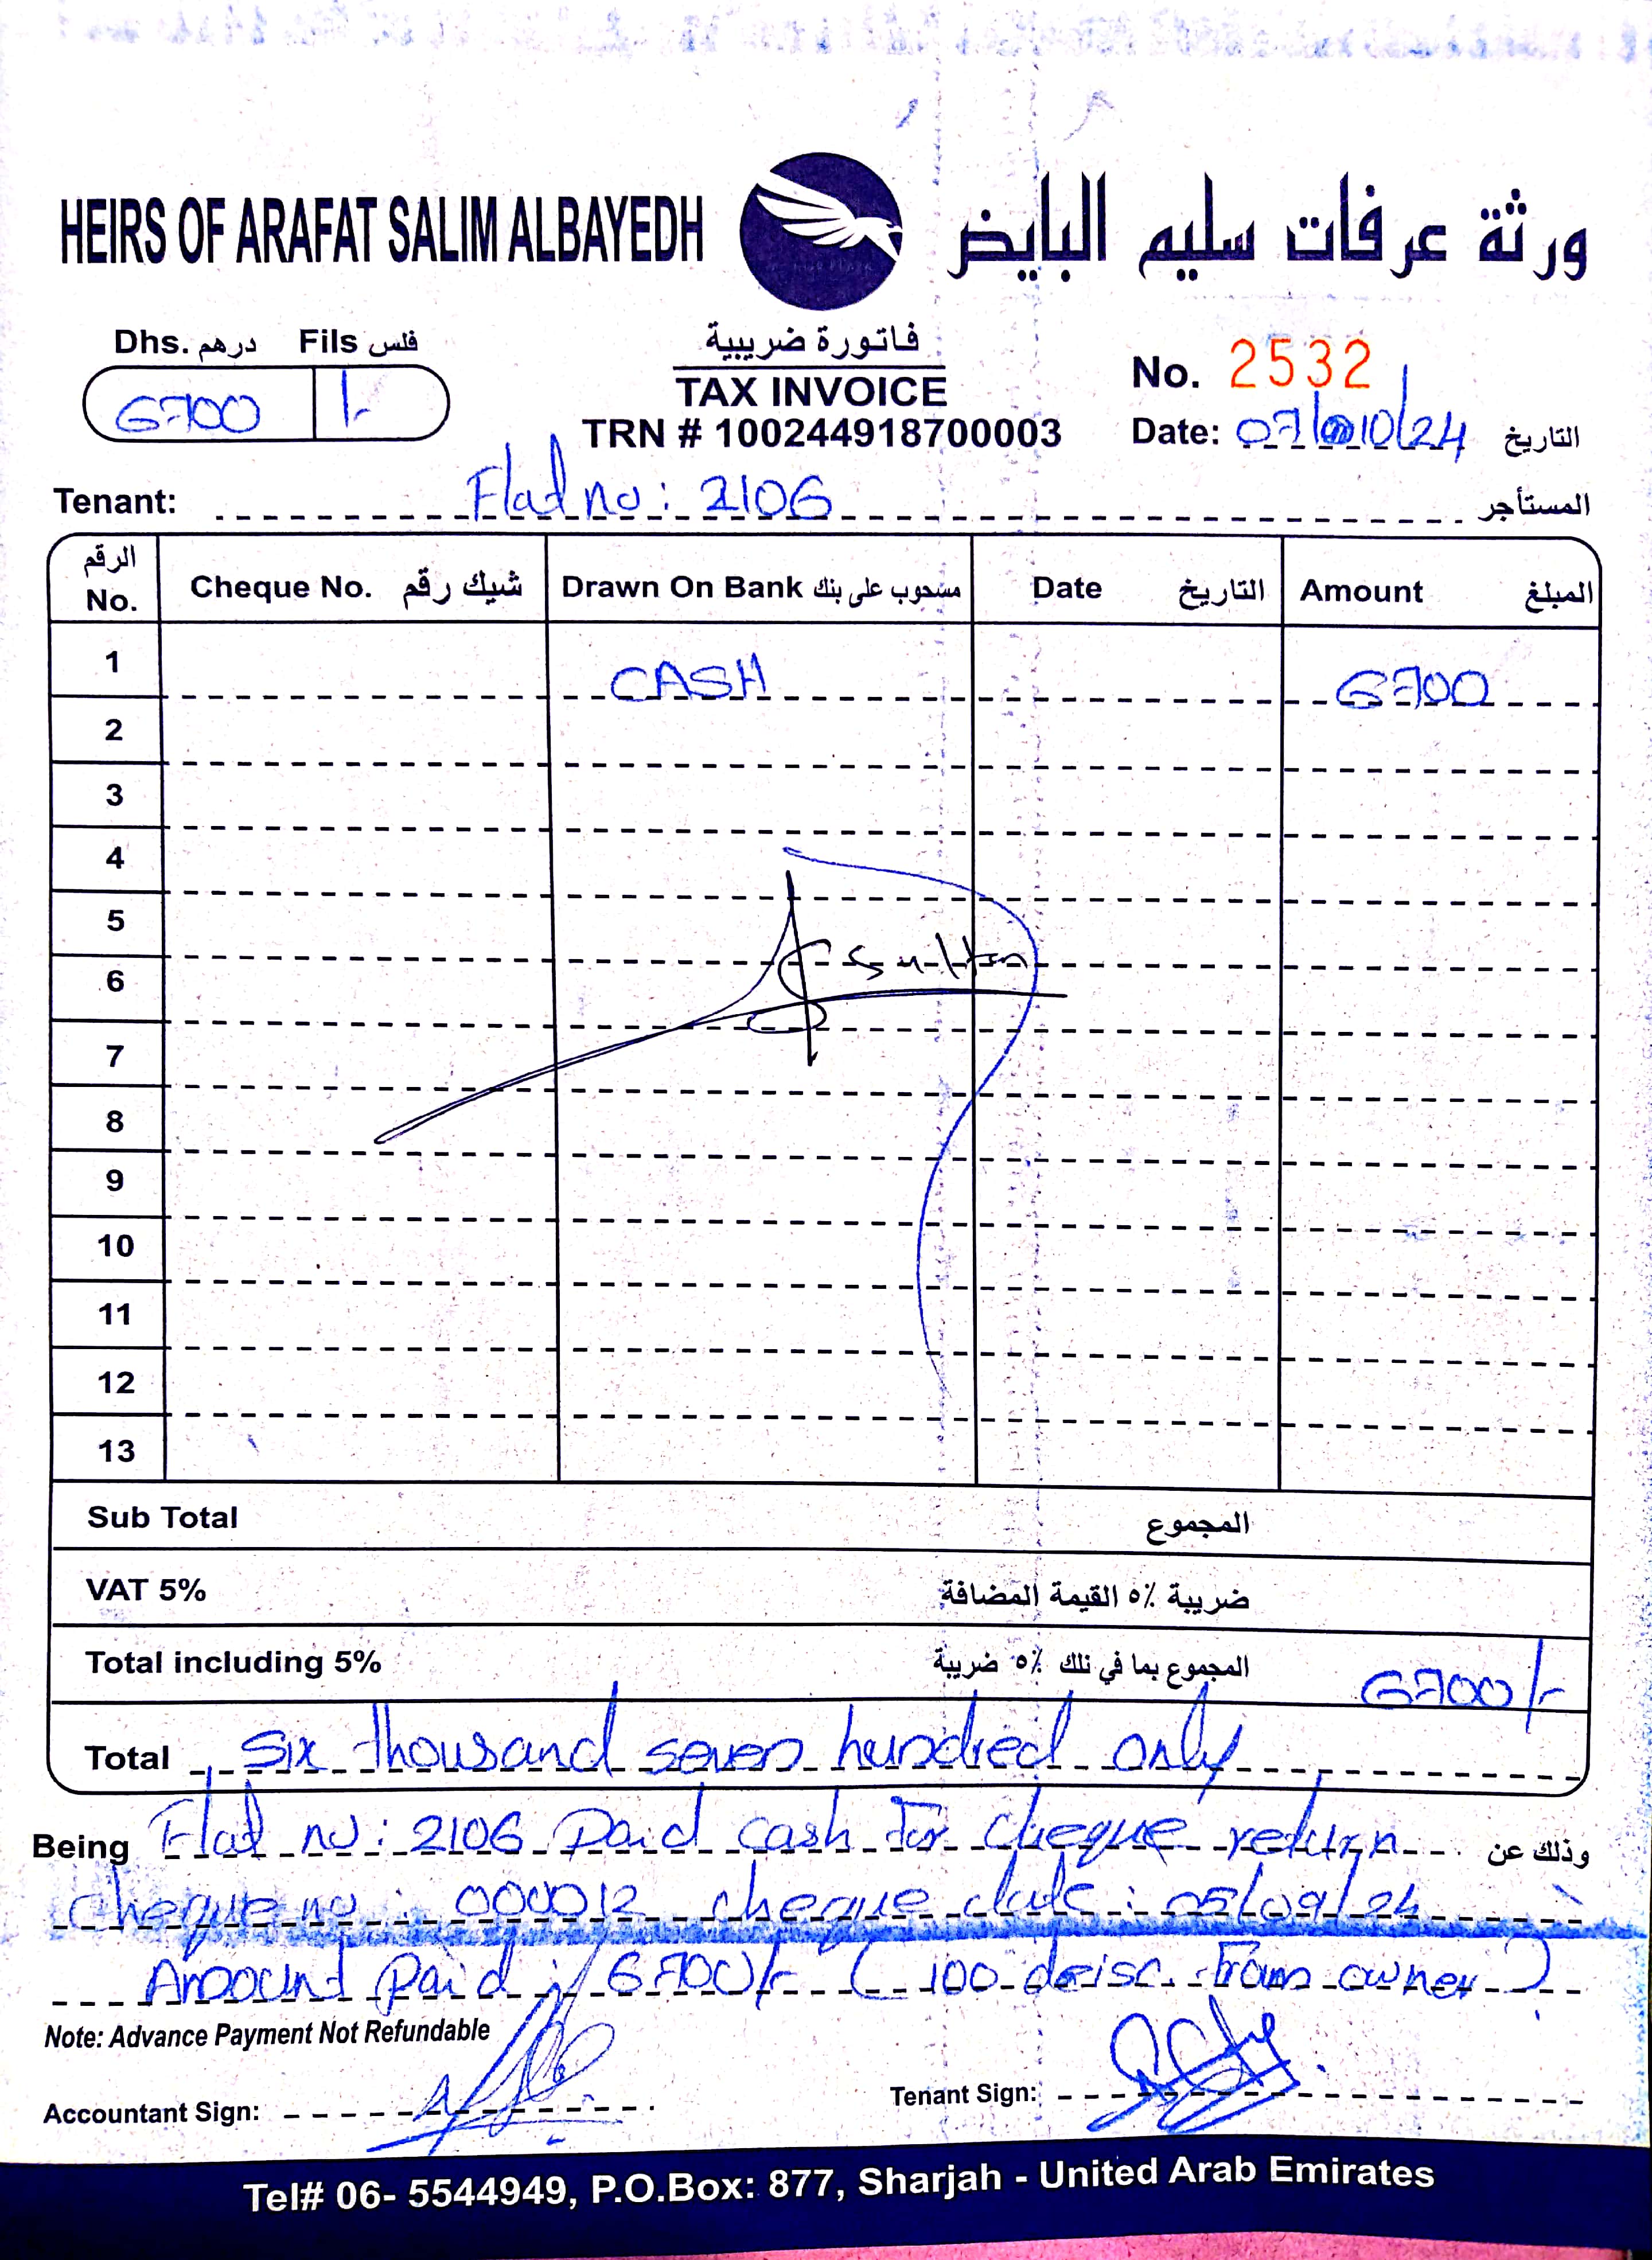 HEIRS OF ARAFAT SALIM ALBAYEDH ورثة عرفات سليم البايض
Dhs. درهم Fils فلس
6700 /-
فاتورة ضريبية
TAX INVOICE
TRN # 100244918700003
No. 2532
Date: 07/10/24 التاريخ
Tenant: Flat no: 2106 المستأجر
الرقم No. Cheque No. شيك رقم Drawn On Bank مسحوب على بنك Date التاريخ Amount المبلغ
1 CASH 6700
2
3
4
5
6 Sultan
7
8
9
10
11
12
13
Sub Total المجموع
VAT 5% ضريبة ٥٪ القيمة المضافة
Total including 5% المجموع بما في تلك ٥٪ ضريبة 6700/-
Total six thousand seven hundred only
Being Flat no: 2106 Paid cash for cheque return وذلك عن
cheque no: 000012 cheque date: 05/09/24
Amount Paid 6700/- (100 disc. from owner)
Note: Advance Payment Not Refundable
Accountant Sign: Tenant Sign:
Tel# 06- 5544949, P.O.Box: 877, Sharjah - United Arab Emirates